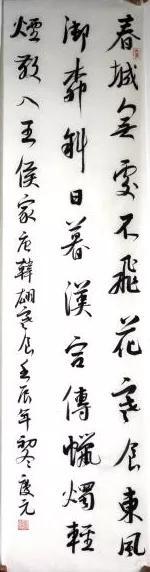 春城無處不飛花寒食東風
御柳斜日暮漢宮傳蠟燭輕
煙散入王侯家唐韓翃寒食壬辰年初冬慶元